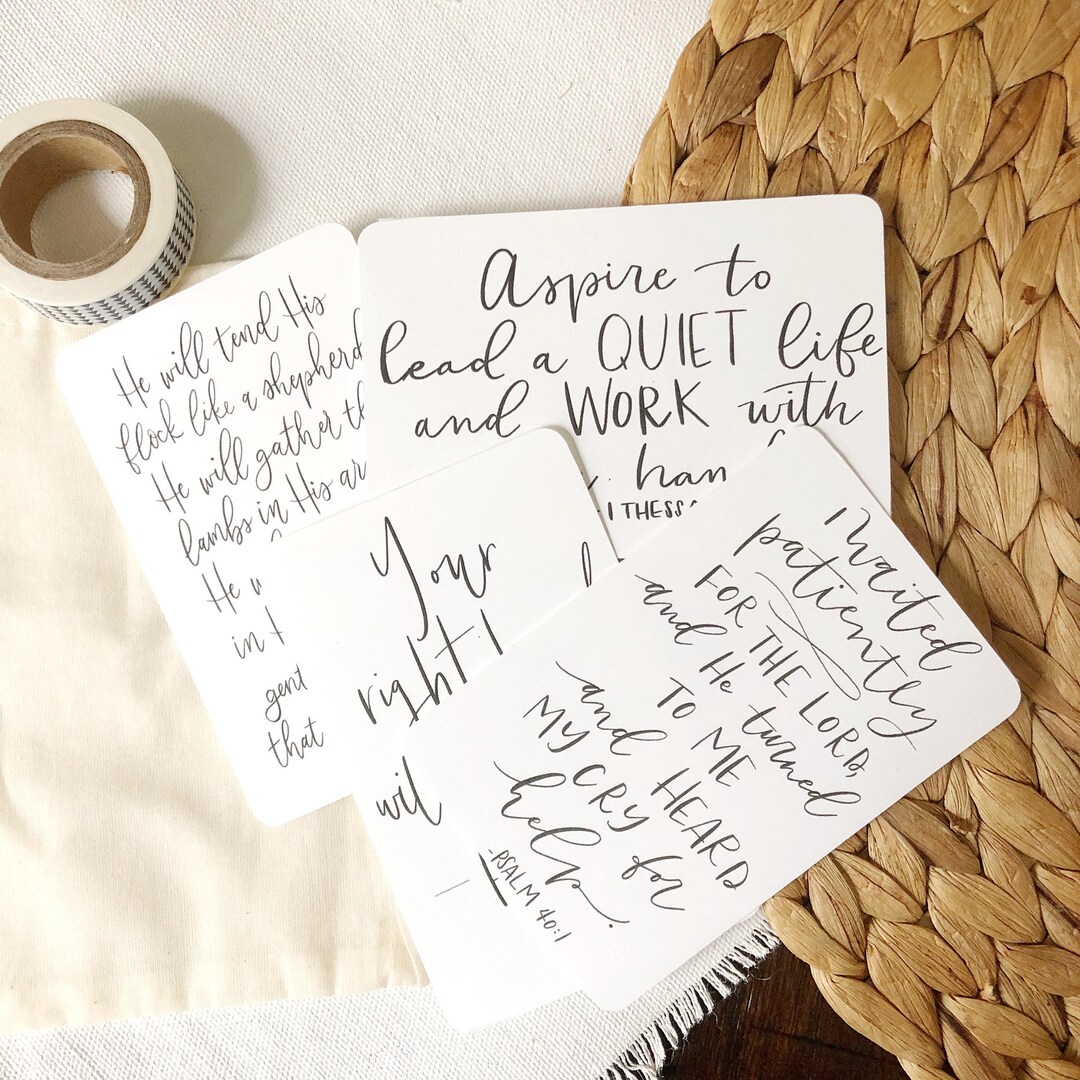 He will tend His
flock like a shepherd
He will gather th
lambs in His ar
He w
in
gent
that
Aspire to
lead a QUIET life
and WORK with
han
1 THESS
Your
right
wil
I waited
patiently
FOR THE LORD,
and He turned
TO ME
and HEARD
MY CRY for
help.
-PSALM 40:1